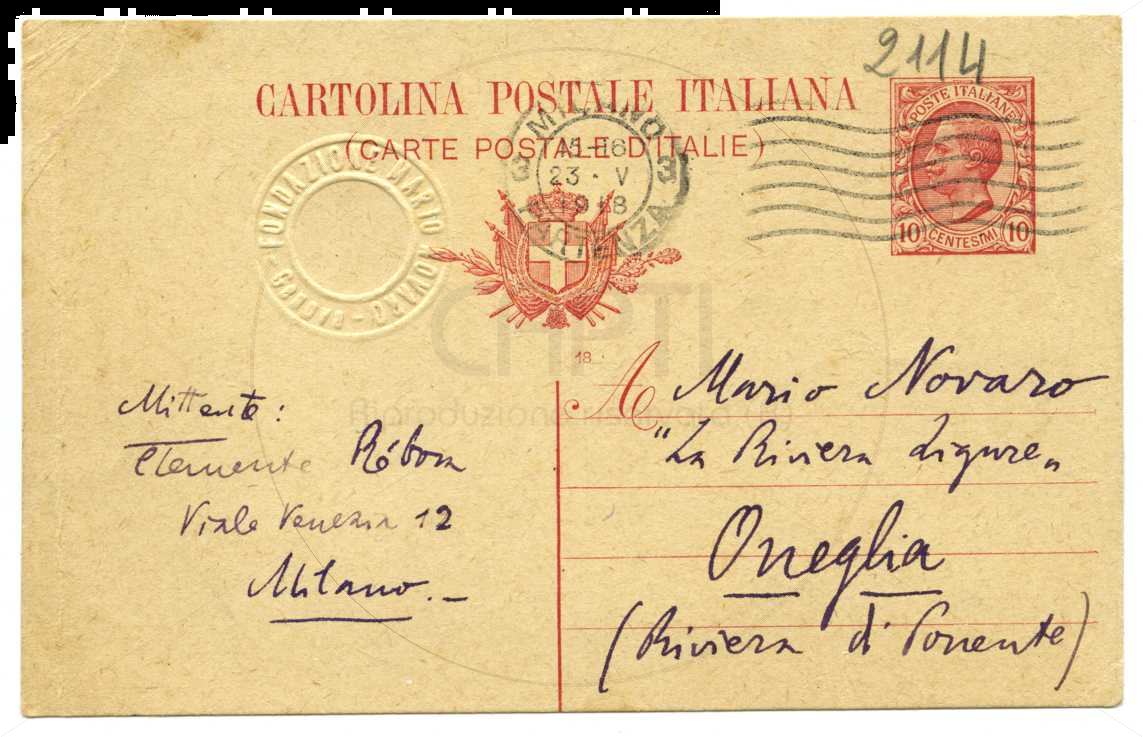 2114
CARTOLINA POSTALE ITALIANA
(CARTE POSTALE D'ITALIE)
POSTE ITALIANE
10 CENTESIMI 10
MILANO
15-16
3 23 · V 3
1918
PARTENZA
FONDAZIONE MARIO NOVARO - GENOVA -
CHPTI
18
A Mario Novaro
"La Riviera Ligure„
Oneglia
(Riviera di Ponente)
Mittente:
Clemente Rébora
Viale Venezia 12
Milano.-